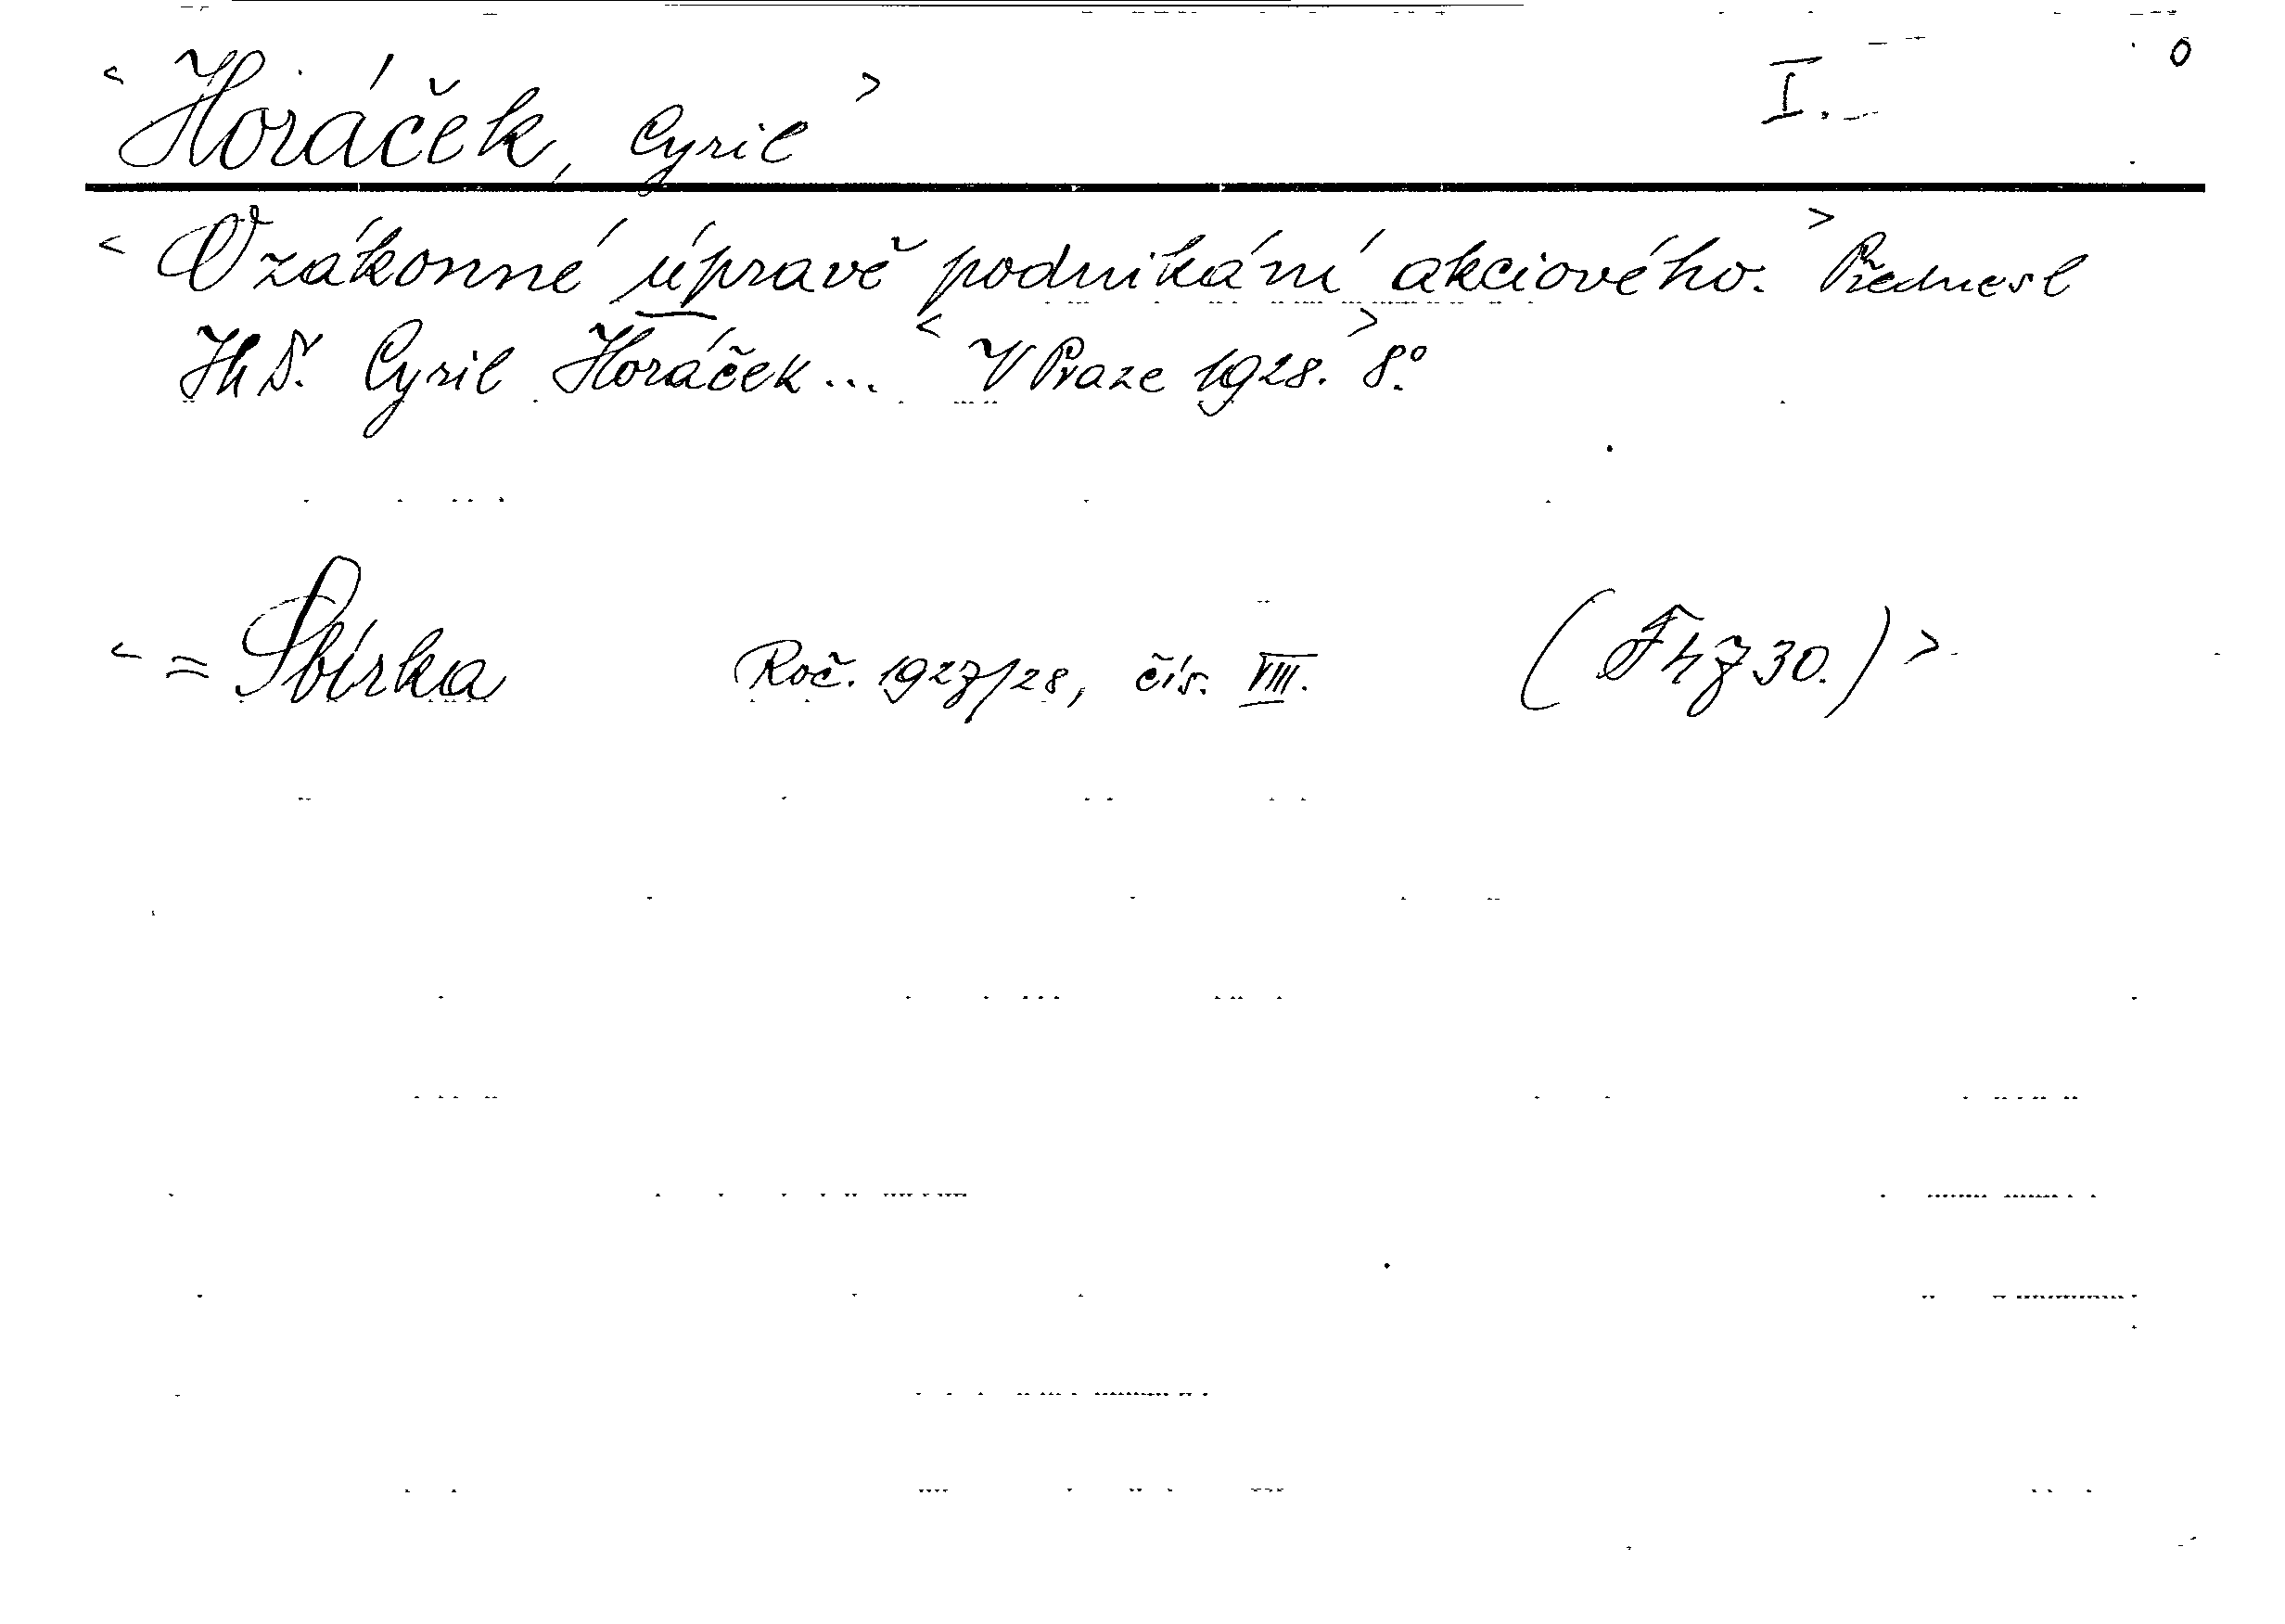 < Horáček, Cyril > I. 0
< O zákonné úpravě podnikání akciového. > Přednesl
JhDr. Cyril Horáček... < V Praze 1928. > 8°.
< = Sbírka Roč. 1927/28, čís. VIII. (F h Z 30.) >